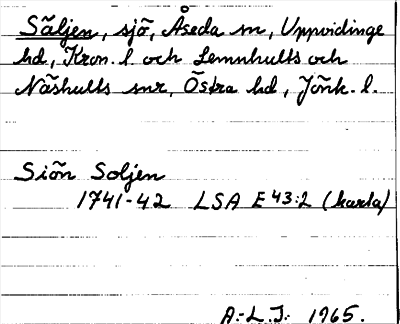 Säljen, sjö, Åseda sn, Uppvidinge
hd, Kron. l. och Lemnhults och
Näshults snr, Östra hd, Jönk. l.
Siön Soljen
1741-42 LSA E 43:2 (karta)
A.-L.J. 1965.